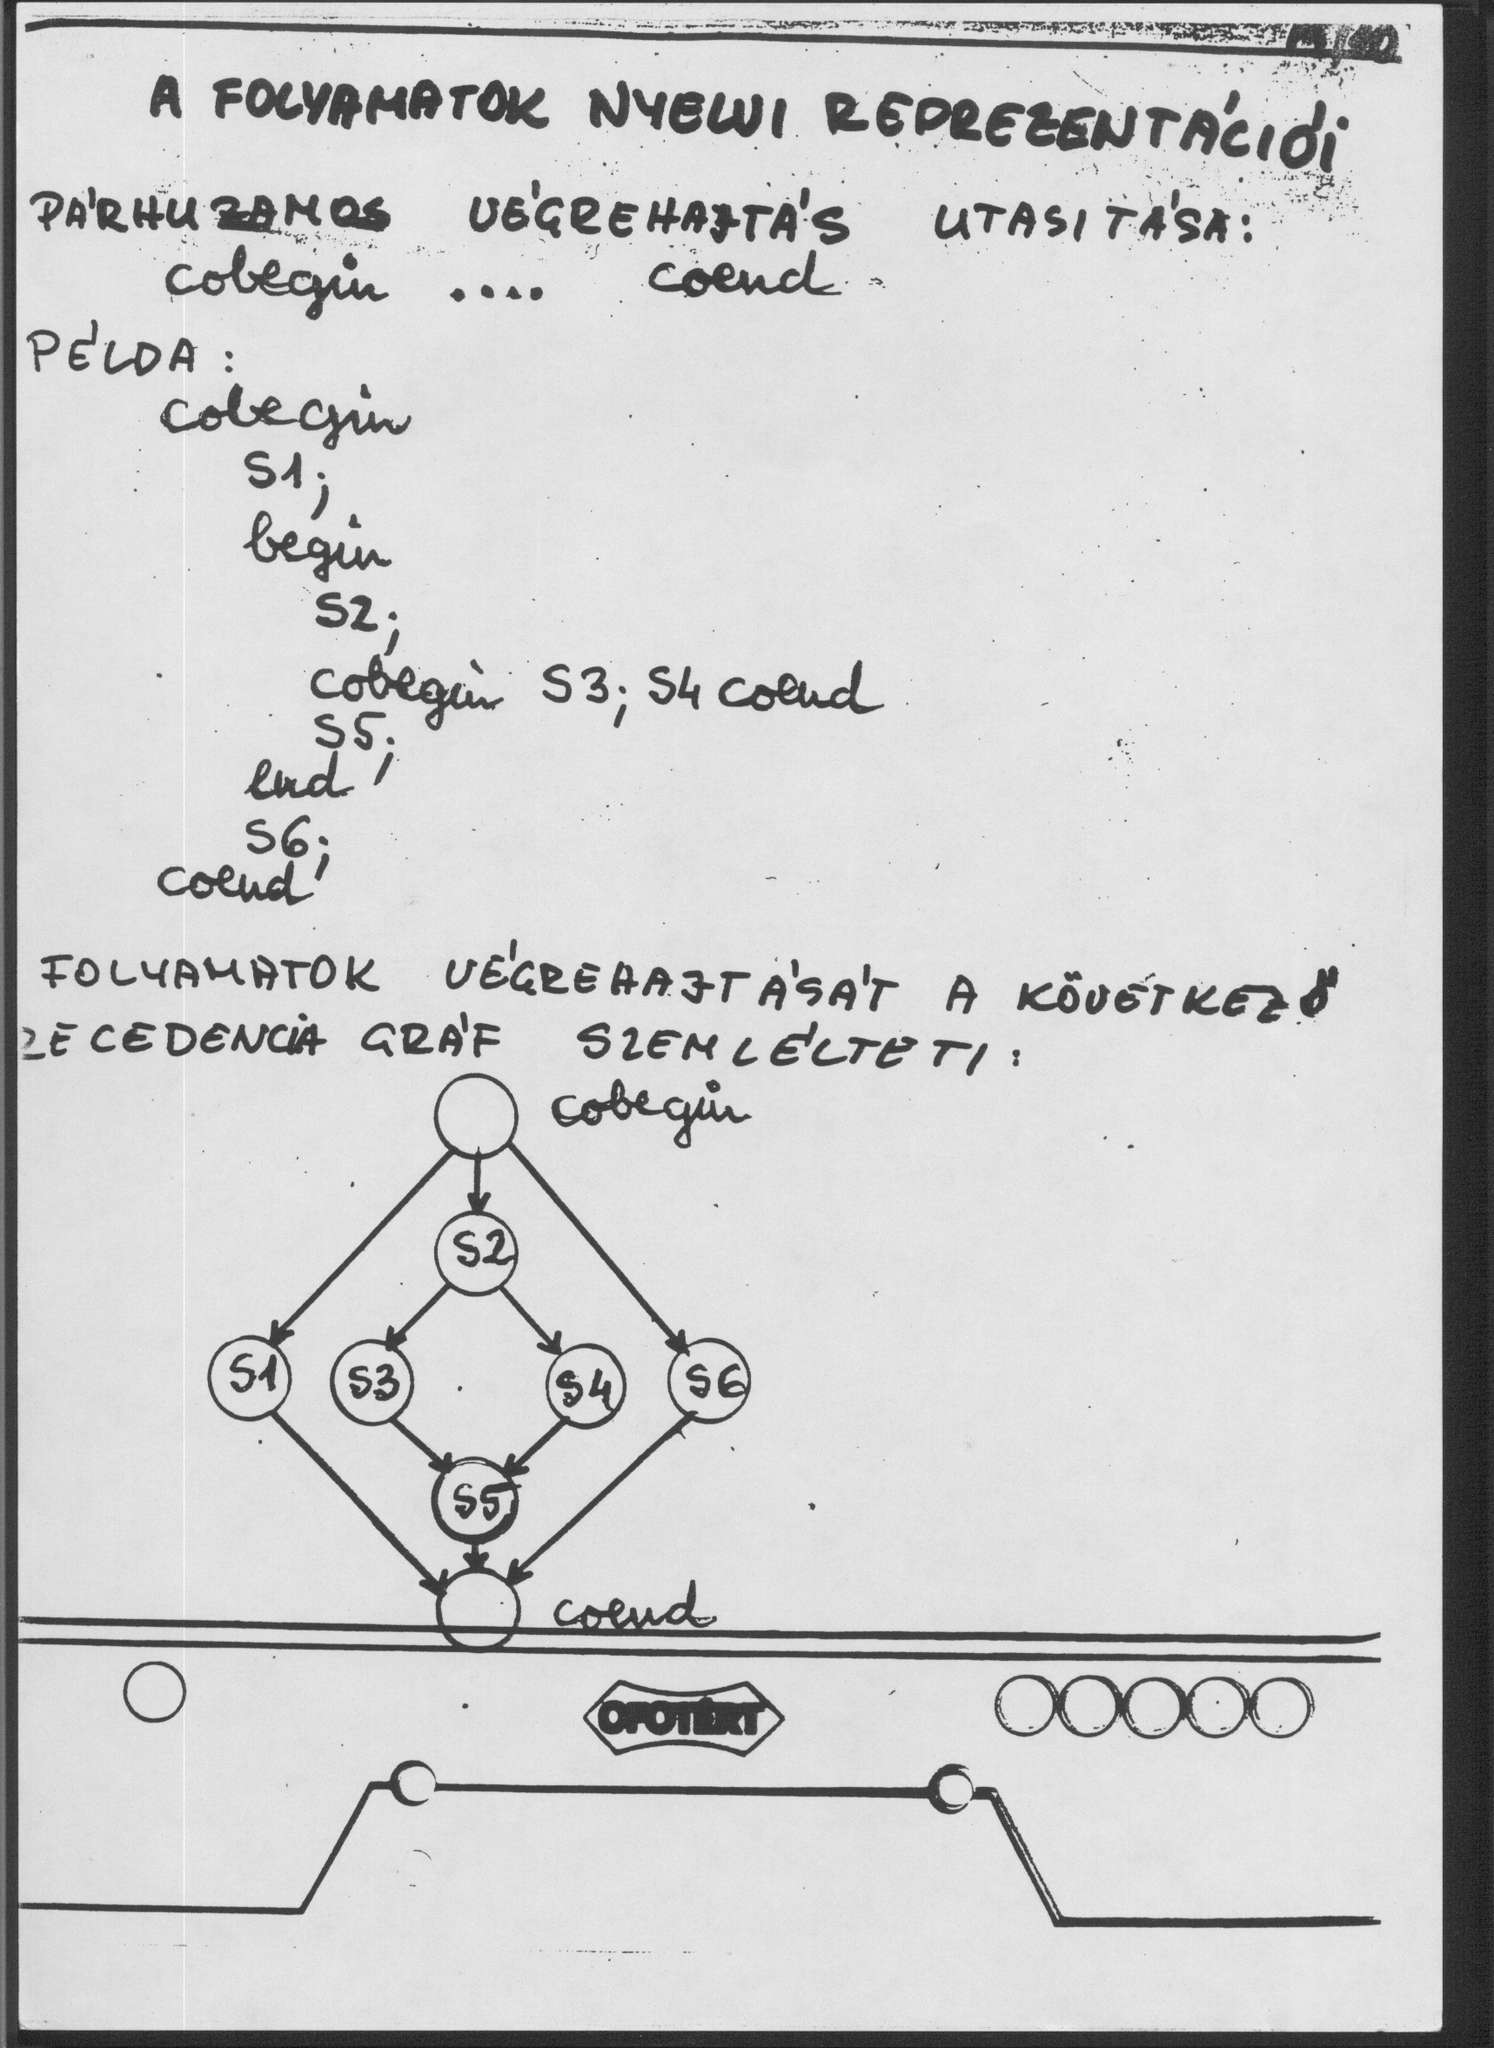 A FOLYAMATOK NYELVI REPREZENTÁCIÓI
PÁRHUZAMOS VÉGREHAJTÁS UTASITÁSA:
cobegin .... coend
PÉLDA:
cobegin
S1;
begin
S2;
cobegin S3; S4 coend
S5;
end
S6;
coend
FOLYAMATOK VÉGREHAJTÁSÁT A KÖVETKEZŐ
ECEDENCIA GRÁF SZEMLÉLTETI:
cobegin
S2
S1 S3 S4 S6
S5
coend
OFOTÉRT